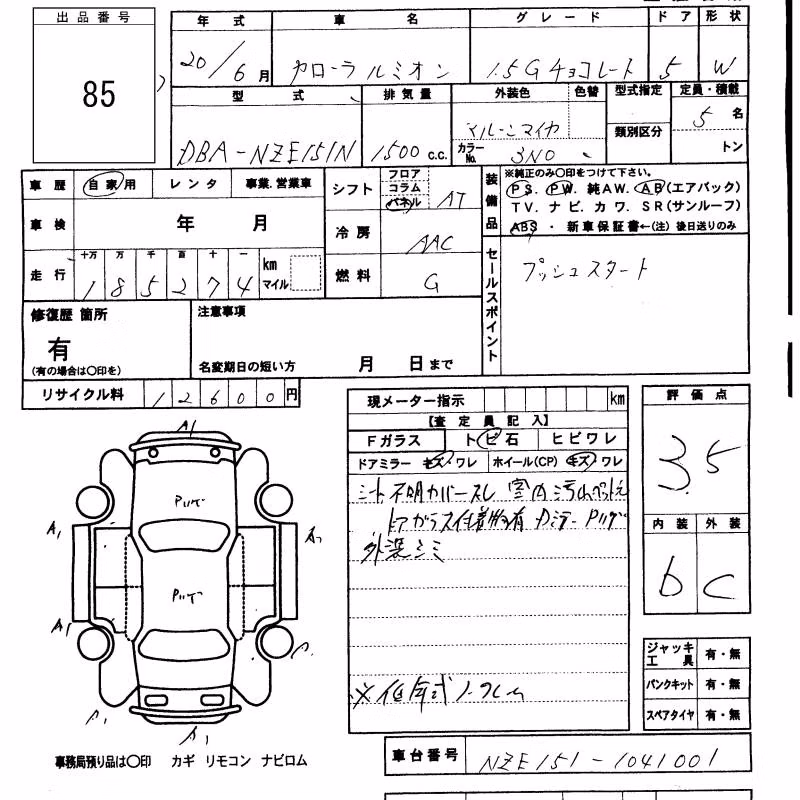 出品番号
85
年式 車名 グレード ドア 形状
20/6月 カローラルミオン 1.5G チョコレート 5 W
型式 排気量 外装色 色替 型式指定 定員・積載
DBA-NZE151N 1500 c.c. カラーNo. 3N0 類別区分 5名
トン
車歴 自家用 レンタ 事業.営業車
シフト フロア コラム パネル AT
装備品 ※純正のみ〇印をつけて下さい。
PS. PW. 純AW. AB(エアバック)
TV. ナビ. カワ. SR(サンルーフ)
ABS ・ 新車保証書←(注) 後日送りのみ
車検 年 月
冷房 AAC
走行 十万 万 千 百 十 一 km マイル
185274
燃料 G
セールスポイント プッシュスタート
修復歴 箇所
有
(有の場合は〇印を)
注意事項
名変期日の短い方 月 日まで
リサイクル料 12600円
現メーター指示 km
【査定員記入】
Fガラス トビ石 ヒビワレ
ドアミラー キズ・ワレ ホイール(CP) キズ・ワレ
外装シミ
※低年式
評価点
3.5
内装 外装
b C
ジャッキ 工具 有・無
パンクキット 有・無
スペアタイヤ 有・無
A1
A1
A2
A1
A1
事務局預り品は〇印 カギ リモコン ナビロム
車台番号 NZE151-1041001